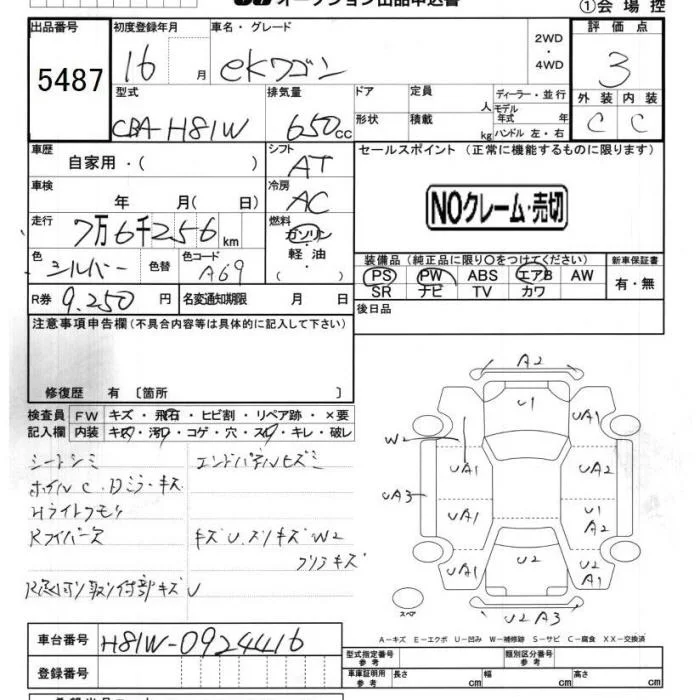 オークション出品申込書
①会場控
出品番号 初度登録年月 車名・グレード 評価点
5487 16 月 eKワゴン 2WD・4WD 3
型式 排気量 ドア 定員 人 ディーラー・並行 外装 内装
CBA-H81W 650cc 形状 積載 kg モデル年式 年 ハンドル 左・右 C C
車歴 シフト セールスポイント (正常に機能するものに限ります)
自家用・( ) AT
車検 冷房
年 月( 日) AC NOクレーム・売切
走行 燃料
7万6千256km ガソリン
色 色替 色コード 軽油 装備品(純正品に限り○をつけてください) 新車保証書
シルバー A69 ・( ) PS PW ABS エアB AW 有・無
R券 9.250円 名変通知期限 月 日 SR ナビ TV カワ
注意事項申告欄(不具合内容等は具体的に記入して下さい) 後日品
修復歴 有 〔箇所 〕
検査員 FW キズ・飛石・ヒビ割・リペア跡・×要
記入欄 内装 キズ・汚れ・コゲ・穴・スレ・キレ・破レ
シートシミ エンドパネルヒズミ
ホイルC.
Hライトクモリ
キズU.スリキズW2
キズU
A2
U1
UA1 UA1
W2
UA1 UA2
UA3
UA1 U1 A2
UA1 U2 U2 A1
スペア
U2 A3
A-キズ E-エクボ U-凹み W-補修跡 S-サビ C-腐食 XX-交換済
車台番号 H81W-0924416
型式指定番号 参考 類別区分番号 参考
登録番号 車庫証明用 参考 長さ cm 幅 cm 高さ cm